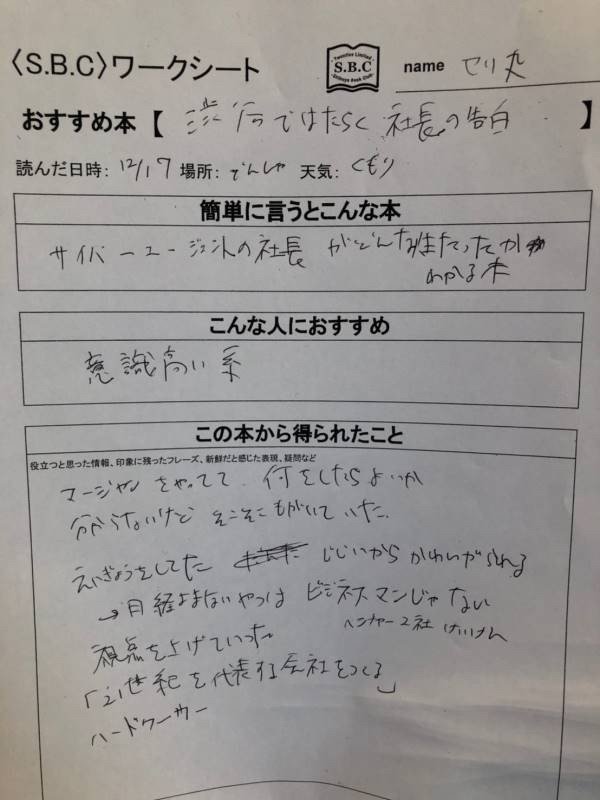 〈S.B.C〉ワークシート
Twentier Limited
S.B.C
Shibuya Book Club
name セリ丸
おすすめ本【 渋谷ではたらく社長の告白 】
読んだ日時: 12/17 場所: でんしゃ 天気: くもり
簡単に言うとこんな本
サイバーエージェントの社長がどんな生たったか
わかる本
こんな人におすすめ
意識高い系
この本から得られたこと
役立つと思った情報、印象に残ったフレーズ、新鮮だと感じた表現、疑問など
マージャンをやってて、何をしたらよいか
分からないけど そこそこもがいていた。
えいぎょうをしてた じじいからかわいがられる
→日経よまないやつは ビジネスマンじゃない
視点を上げていった ベンチャー2社 けいけん
「21世紀を代表する会社をつくる」
ハードワーカー